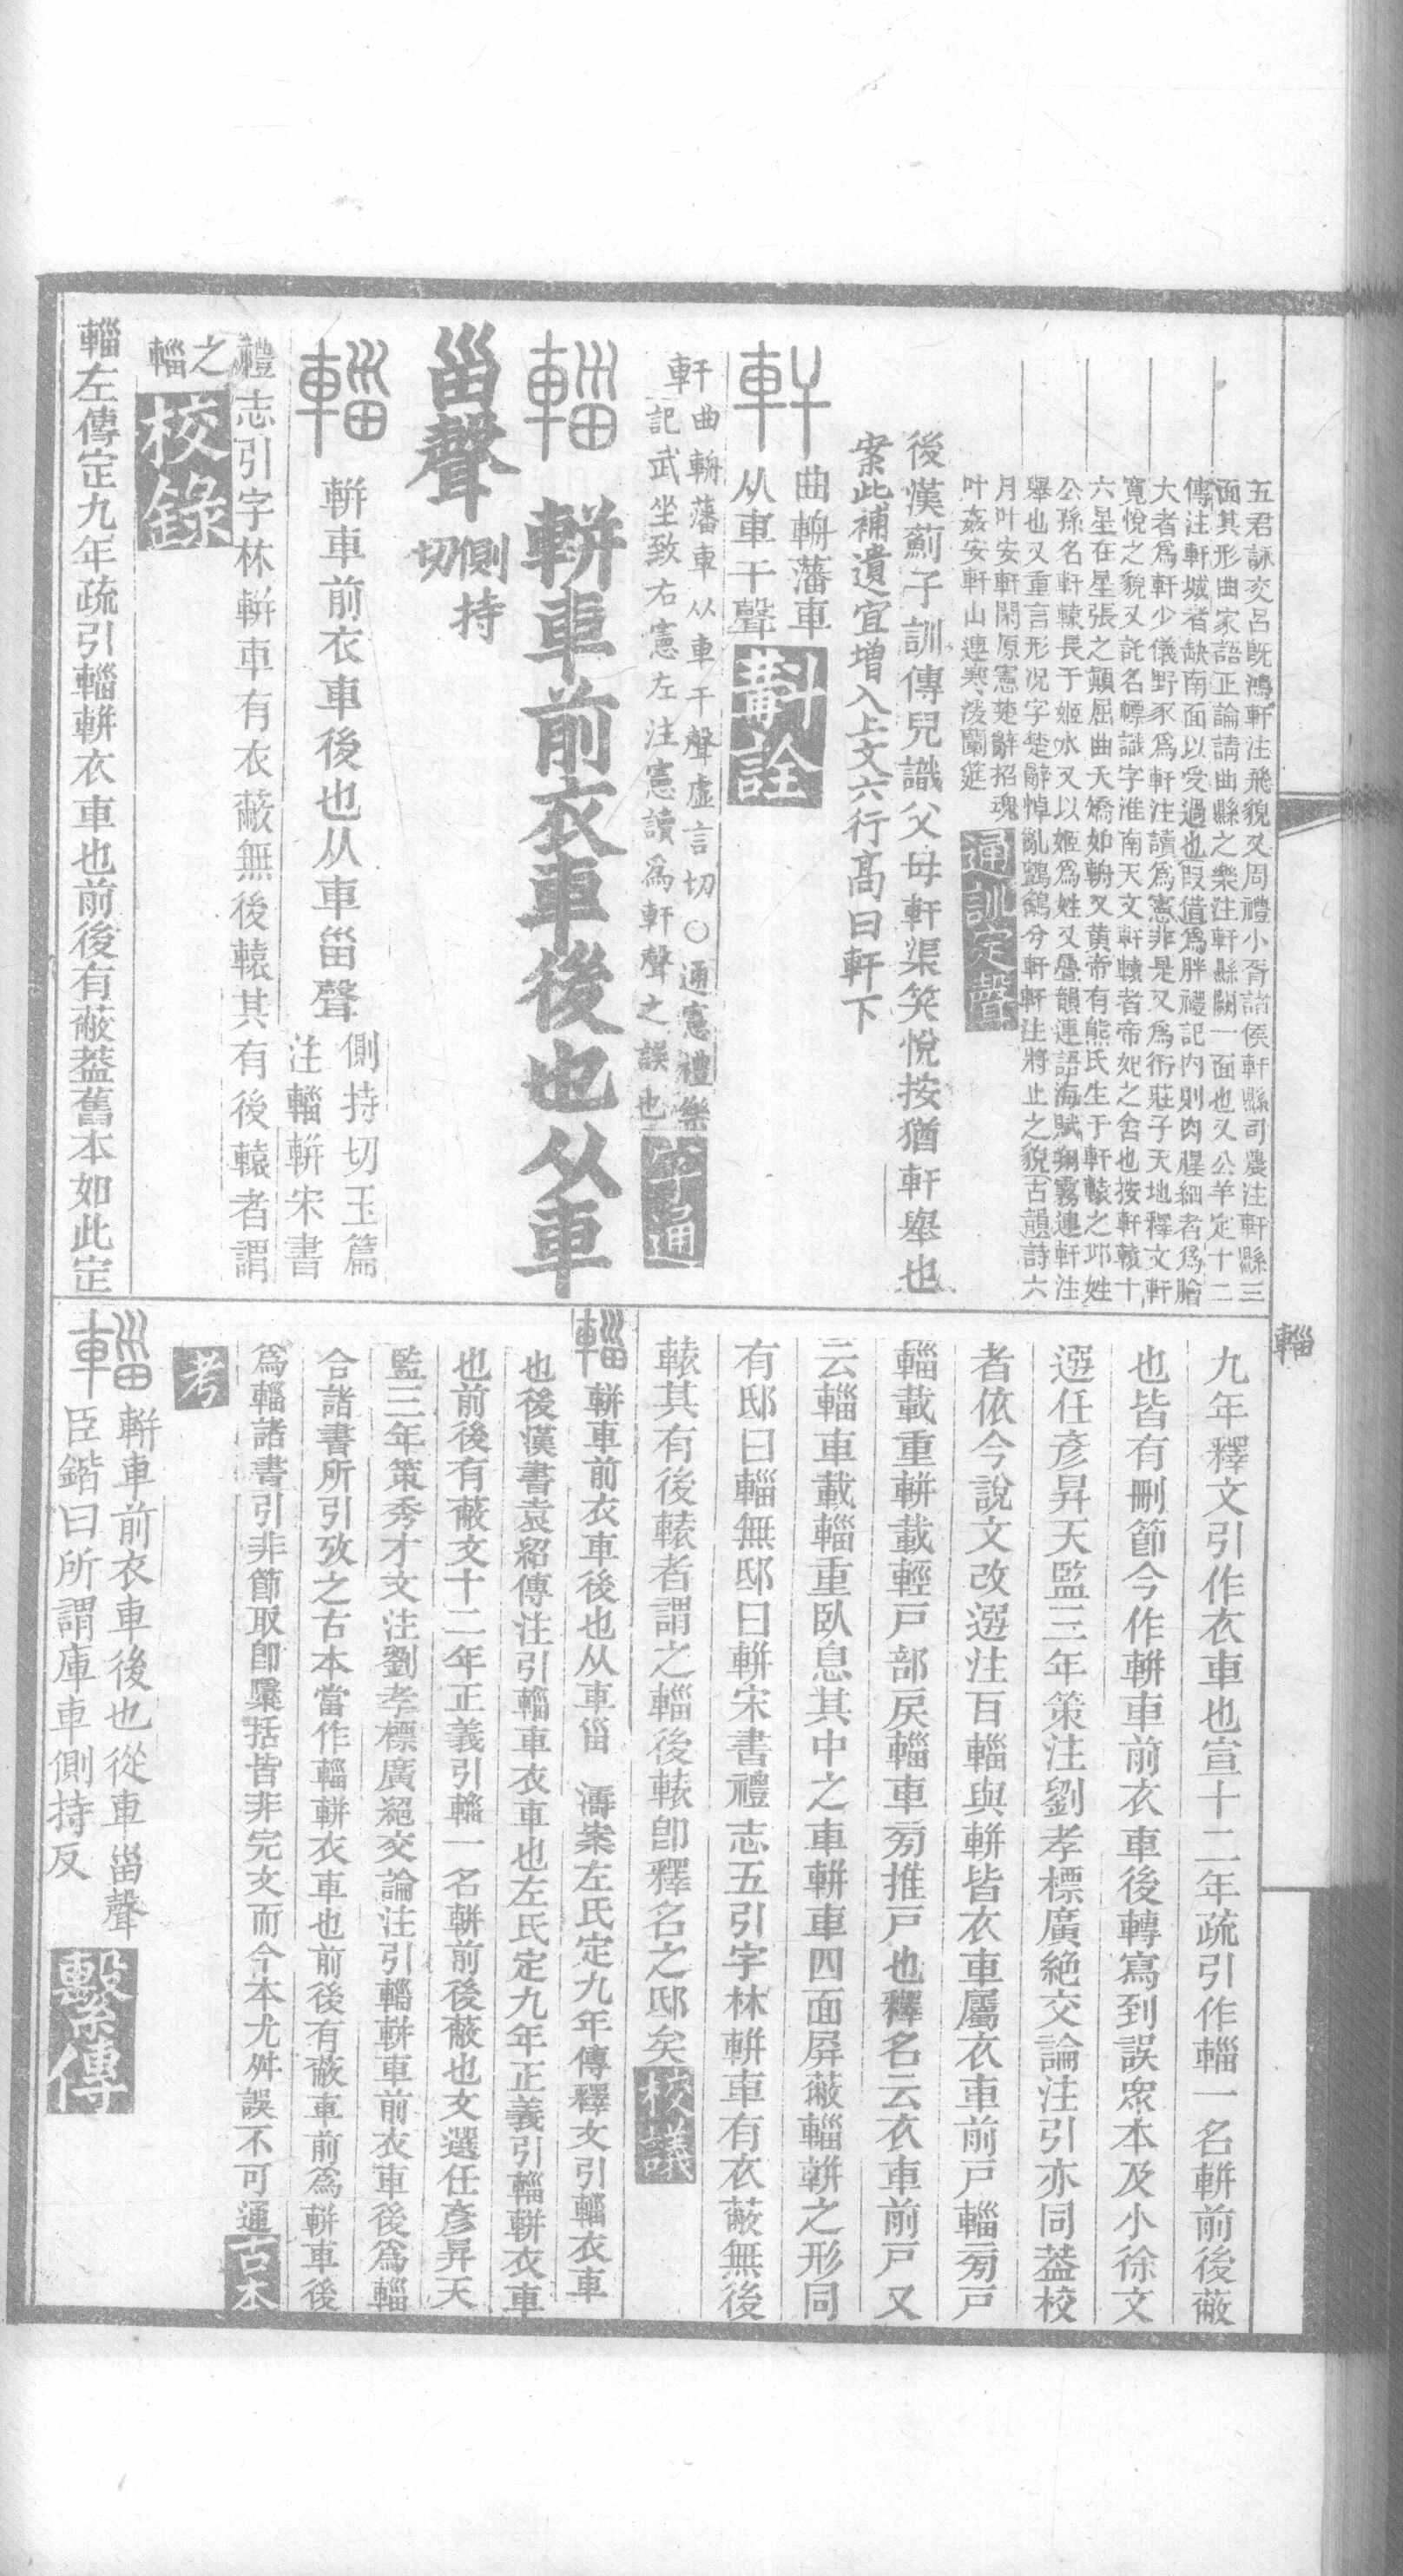 五君詠交呂既鴻軒注飛貌又周禮小胥諸侯軒縣司農注軒縣三
面其形曲家語正論請曲縣之樂注軒縣闕一面也又公羊定十二
傳注軒城者缺南面以受過也叚借爲胖禮記內則肉腥細者爲膾
大者爲軒少儀野豕爲軒注讀爲憲非是又爲衎莊子天地釋文軒
寬悅之貌又託名幖識字淮南天文軒轅者帝妃之舍也按軒轅十
六星在星張之顛屈曲夭矯如輈又黃帝有熊氏生于軒轅之邱姓
公孫名軒轅長于姬水又以姬爲姓又疊韻連語海賦翔霧連軒注
舉也又重言形況字楚辭悼亂鶤鶴兮軒軒注將止之貌古韻詩六
月叶安軒閑原憲楚辭招魂
叶姦安軒山連寒湲蘭筵
通訓定聲
後漢薊子訓傳兒識父母軒渠笑悅按猶軒舉也
案此補遺宜增入上文六行高曰軒下
軒
曲輈藩車
从車干聲
斠詮
軒曲輈藩車从車干聲虛言切○通憲禮樂
記武坐致右憲左注憲讀爲軒聲之誤也
字通
輜
軿車前衣車後也从車
甾聲
側持
切
輜
軿車前衣車後也从車甾聲
側持切玉篇
注輜軿宋書
禮志引字林軿車有衣蔽無後轅其有後轅者謂
之輜
校錄
輜左傳定九年疏引輜軿衣車也前後有蔽葢舊本如此定
輜
九年釋文引作衣車也宣十二年疏引作輜一名軿前後蔽
也皆有刪節今作軿車前衣車後轉寫到誤眾本及小徐文
選任彥昇天監三年策注劉孝標廣絶交論注引亦同葢校
者依今說文改選注百輜與軿皆衣車屬衣車前戶輜㫄戶
輜載重軿載輕戶部戾輜車㫄推戶也釋名云衣車前戶又
云輜車載輜重臥息其中之車軿車四面屏蔽輜軿之形同
有邸曰輜無邸曰軿宋書禮志五引字林軿車有衣蔽無後
轅其有後轅者謂之輜後轅卽釋名之邸矣
校議
輜軿車前衣車後也从車甾 濤案左氏定九年傳釋文引輜衣車
也後漢書袁紹傳注引輜車衣車也左氏定九年正義引輜軿衣車
也前後有蔽文十二年正義引輜一名軿前後蔽也文選任彥昇天
監三年策秀才文注劉孝標廣絕交論注引輜軿車前衣車後爲輜
合諸書所引攷之古本當作輜軿衣車也前後有蔽車前爲軿車後
爲輜諸書引非節取卽檃括皆非完文而今本尤舛誤不可通
古本
考
輜
軿車前衣車後也從車甾聲
臣鍇曰所謂庫車側持反
繫傳